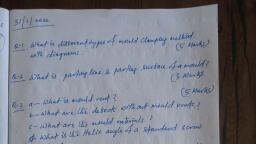 31/1/2022
Q-1 What is different types of mould clamping method
with diagrams. (5 Marks)
Q-2 What is parting line & parting surface of a mould?
(5 Marks)
Q-3 a- What is mould vent? (5 Marks)
b- What are the defects without mould vents?
c- What are the mould materials?
d- What is the Helix angle of a standard screw